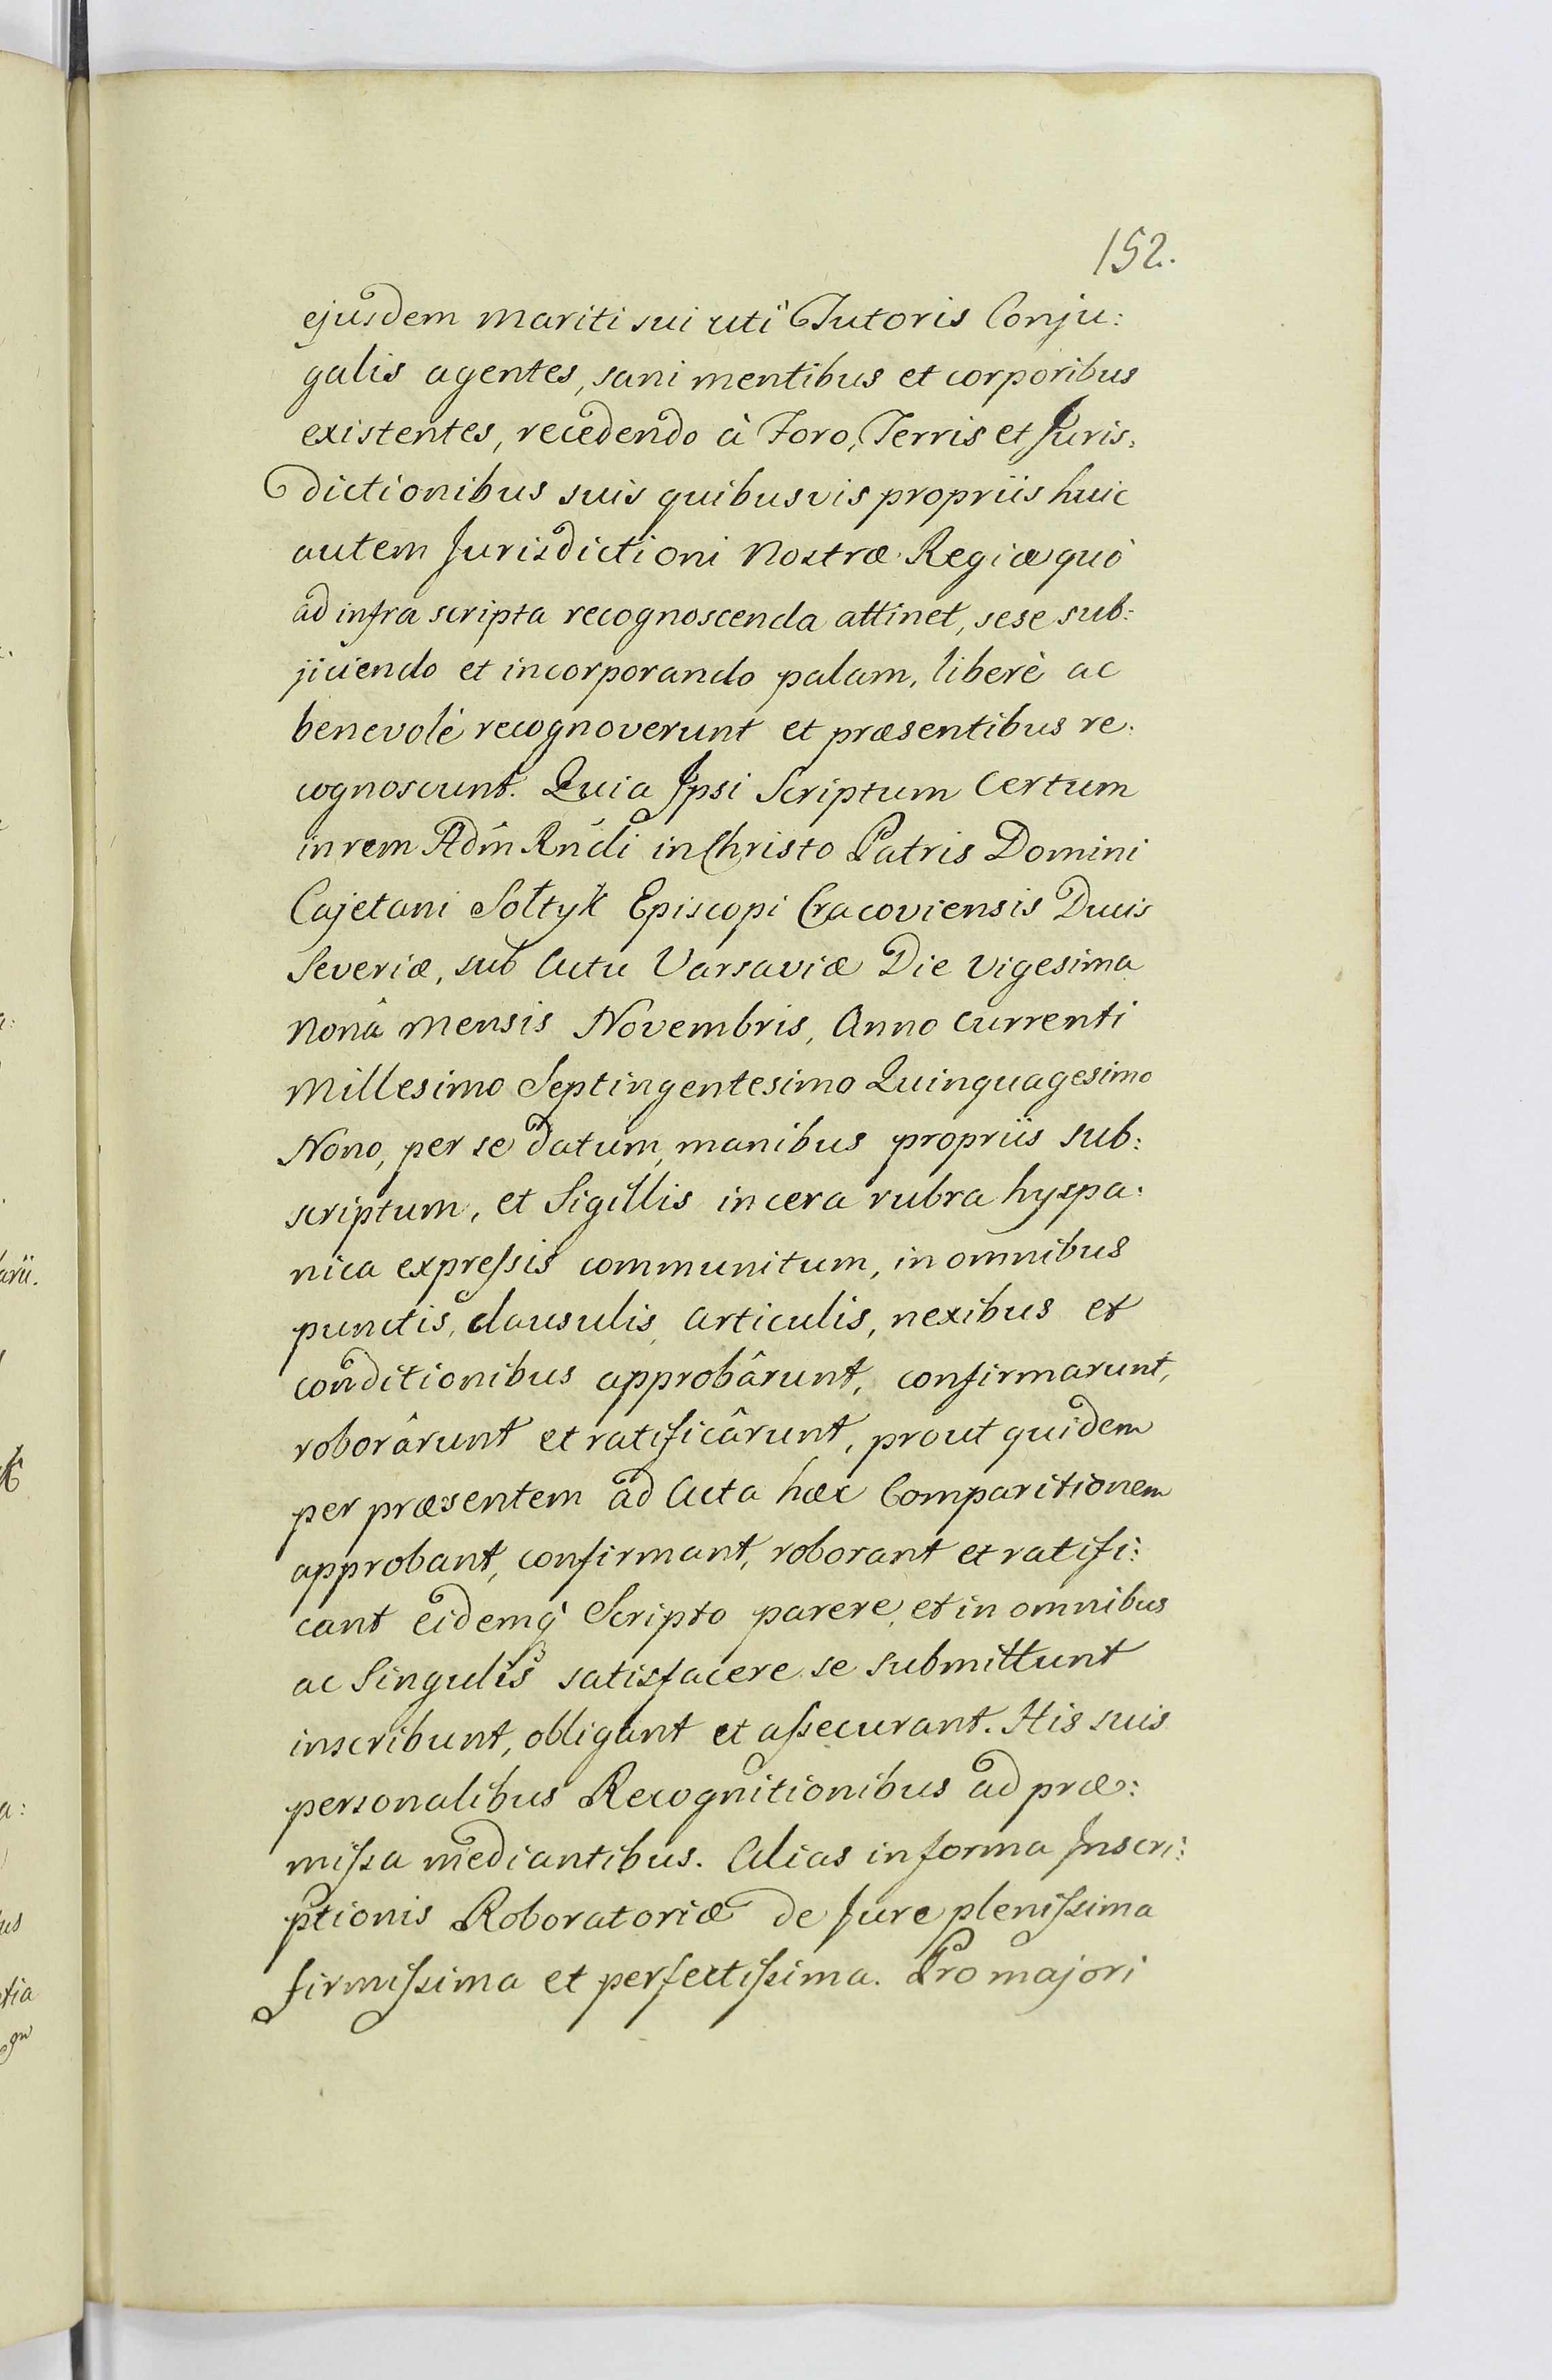 152.
ejusdem mariti sui uti Tutoris Conju:
galis agentes, sani mentibus et corporibus
existentes, recedendo à Foro, Terris et Juris:
dictionibus suis quibusvis propriis huic
autem Jurisdictioni Nostræ Regiæ quò
ad infra scripta recognoscenda attinet, sese sub:
jiciendo et incorporando palam, liberè ac
benevolè recognoverunt et præsentibus re:
cognoscunt. Quia Ipsi Scriptum Certum
in rem Adm Rndi in Christo Patris Domini
Cajetani Sołtyk Episcopi Cracoviensis Ducis
Severiæ, sub Actu Varsaviæ Die vigesima
nonâ mensis Novembris, Anno currenti
Millesimo Septingentesimo Quinquagesimo
Nono, per se datum, manibus propriis sub:
scriptum, et Sigillis in cera rubra hyspa:
nica expreſsis communitum, in omnibus
punctis, clausulis, articulis, nexibus et
conditionibus approbârunt, confirmarunt,
roborârunt et ratificârunt, prout quidem
per præsentem ad Acta hæc Comparitionem
approbant, confirmant, roborant et ratifi:
cant eidemq̀ Scripto parere, et in omnibus
ac Singulis satisfacere se submittunt
inscribunt, obligant et aſsecurant. His suis
personalibus Recognitionibus ad præ:
miſsa mediantibus. Alias in forma Inscri:
ptionis Roboratoriæ de Jure pleniſsima
firmiſsima et perfectiſsima. Pro majori